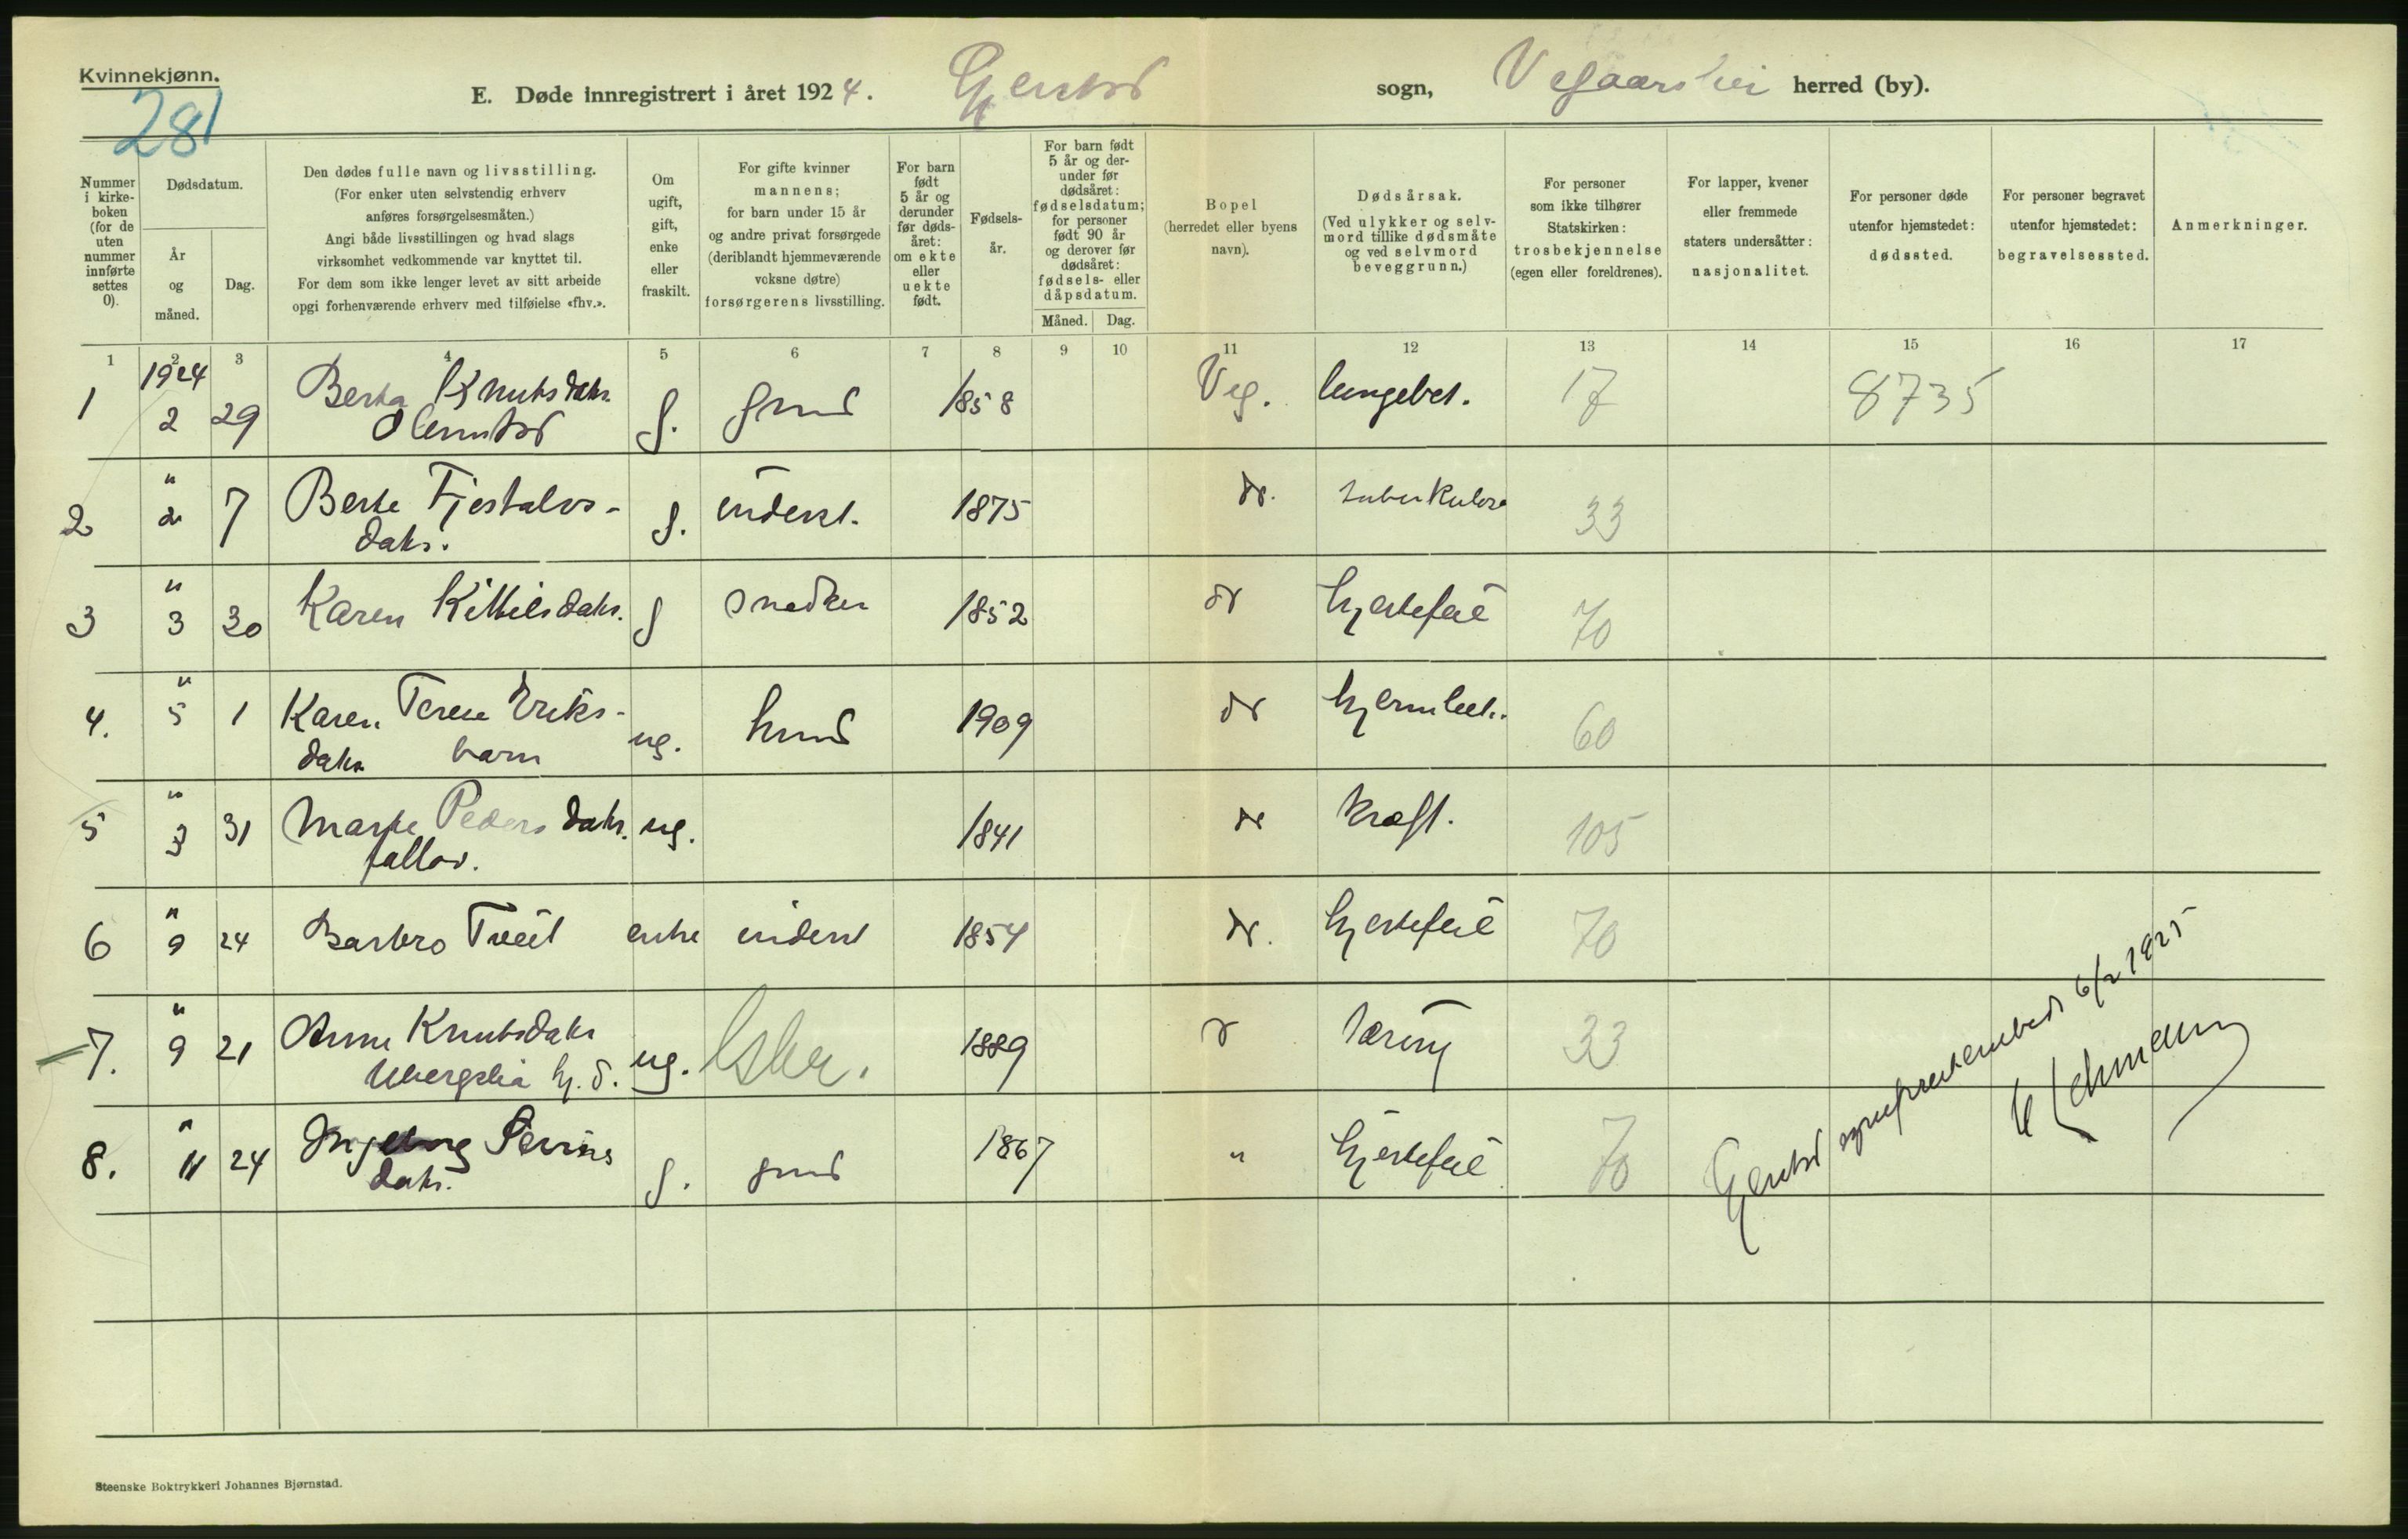 Kvinnekjønn.
281
E. Døde innregistrert i året 1924. Gjerstad sogn, Vegaarshei herred (by).
Nummer i kirkeboken (for de uten nummer innførte settes 0).
Dødsdatum.
År og måned.
Dag.
Den dødes fulle navn og livsstilling.
(For enker uten selvstendig erhverv anføres forsørgelsesmåten.)
Angi både livsstillingen og hvad slags virksomhet vedkommende var knyttet til.
For dem som ikke lenger levet av sitt arbeide opgi forhenværende erhverv med tilføielse «fhv.».
Om ugift, gift, enke eller fraskilt.
For gifte kvinner mannens; for barn under 15 år og andre privat forsørgede (deriblandt hjemmeværende voksne døtre) forsørgerens livsstilling.
For barn født 5 år og derunder før dødsåret: om ekte eller uekte født.
Fødselsår.
For barn født 5 år og derunder før dødsåret: fødselsdatum; for personer født 90 år og derover før dødsåret: fødsels- eller dåpsdatum.
Måned. Dag.
Bopel (herredet eller byens navn).
Dødsårsak.
(Ved ulykker og selvmord tillike dødsmåte og ved selvmord beveggrunn.)
For personer som ikke tilhører Statskirken: trosbekjennelse (egen eller foreldrenes).
For lapper, kvener eller fremmede staters undersåtter: nasjonalitet.
For personer døde utenfor hjemstedet: dødssted.
For personer begravet utenfor hjemstedet: begravelsessted.
Anmerkninger.
1 2 3 4 5 6 7 8 9 10 11 12 13 14 15 16 17
1924
1 2 29 Berta Knutsdatr. g. grmd 1858 Veg. lungebet. 17 8735
2 " 2 7 Berte Fjestalvs- g. inderst. 1875 do. tuberkulose 33
datr.
3 " 3 30 Karen Kittilsdatr. g snedker 1852 do hjertefeil 70
4. " 5 1 Karen Terese Eriks- ug. 1909 do 60
datr barn
5 " 3 31 Marte Pedersdatr. ug. 1841 do kræft. 105
6 " 9 24 Barbro Tveit enke inderst 1854 do. hjertefeil 70
7. " 9 21 Anne Knutsdatr ug. 1889 tæring 33
Ubergslia hj. d.
8. " 11 24 Ingeborg g. grmd 1867 " hjertefeil 70
datr.
Gjerstad sogneprestembede 6/2 1925
Steenske Boktrykkeri Johannes Bjørnstad.